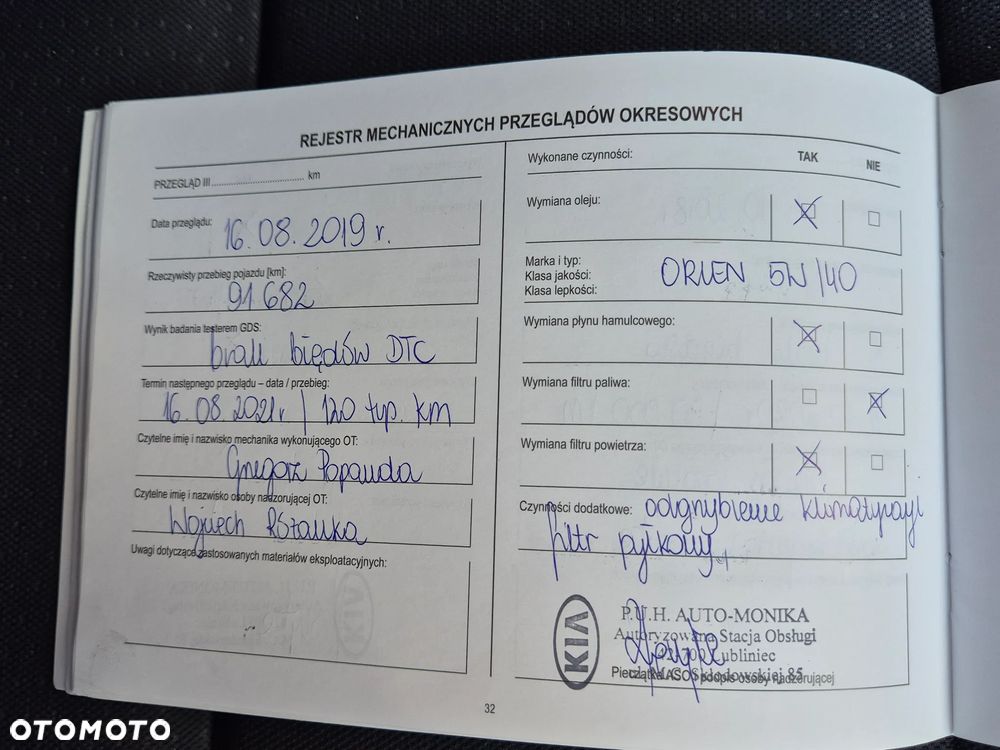 REJESTR MECHANICZNYCH PRZEGLĄDÓW OKRESOWYCH
PRZEGLĄD III ................................ km
Data przeglądu:
16.08.2019 r.
Rzeczywisty przebieg pojazdu [km]:
91 682
Wynik badania testerem GDS:
brak błędów DTC
Termin następnego przeglądu – data / przebieg:
16.08.2021r / 120 tyś. km
Czytelne imię i nazwisko mechanika wykonującego OT:
Grzegorz
Czytelne imię i nazwisko osoby nadzorującej OT:
Wojciech
Uwagi dotyczące zastosowanych materiałów eksploatacyjnych:
Wykonane czynności: TAK NIE
Wymiana oleju:
Marka i typ:
Klasa jakości:
Klasa lepkości:
ORLEN 5W/40
Wymiana płynu hamulcowego:
Wymiana filtru paliwa:
Wymiana filtru powietrza:
Czynności dodatkowe: odgrzybienie klimatyzacji
filtr pyłkowy
KIA
P.U.H. AUTO-MONIKA
Autoryzowana Stacja Obsługi
Lubliniec
Skłodowskiej 85
Pieczątka ASO i podpis osoby nadzorującej
32
OTOMOTO